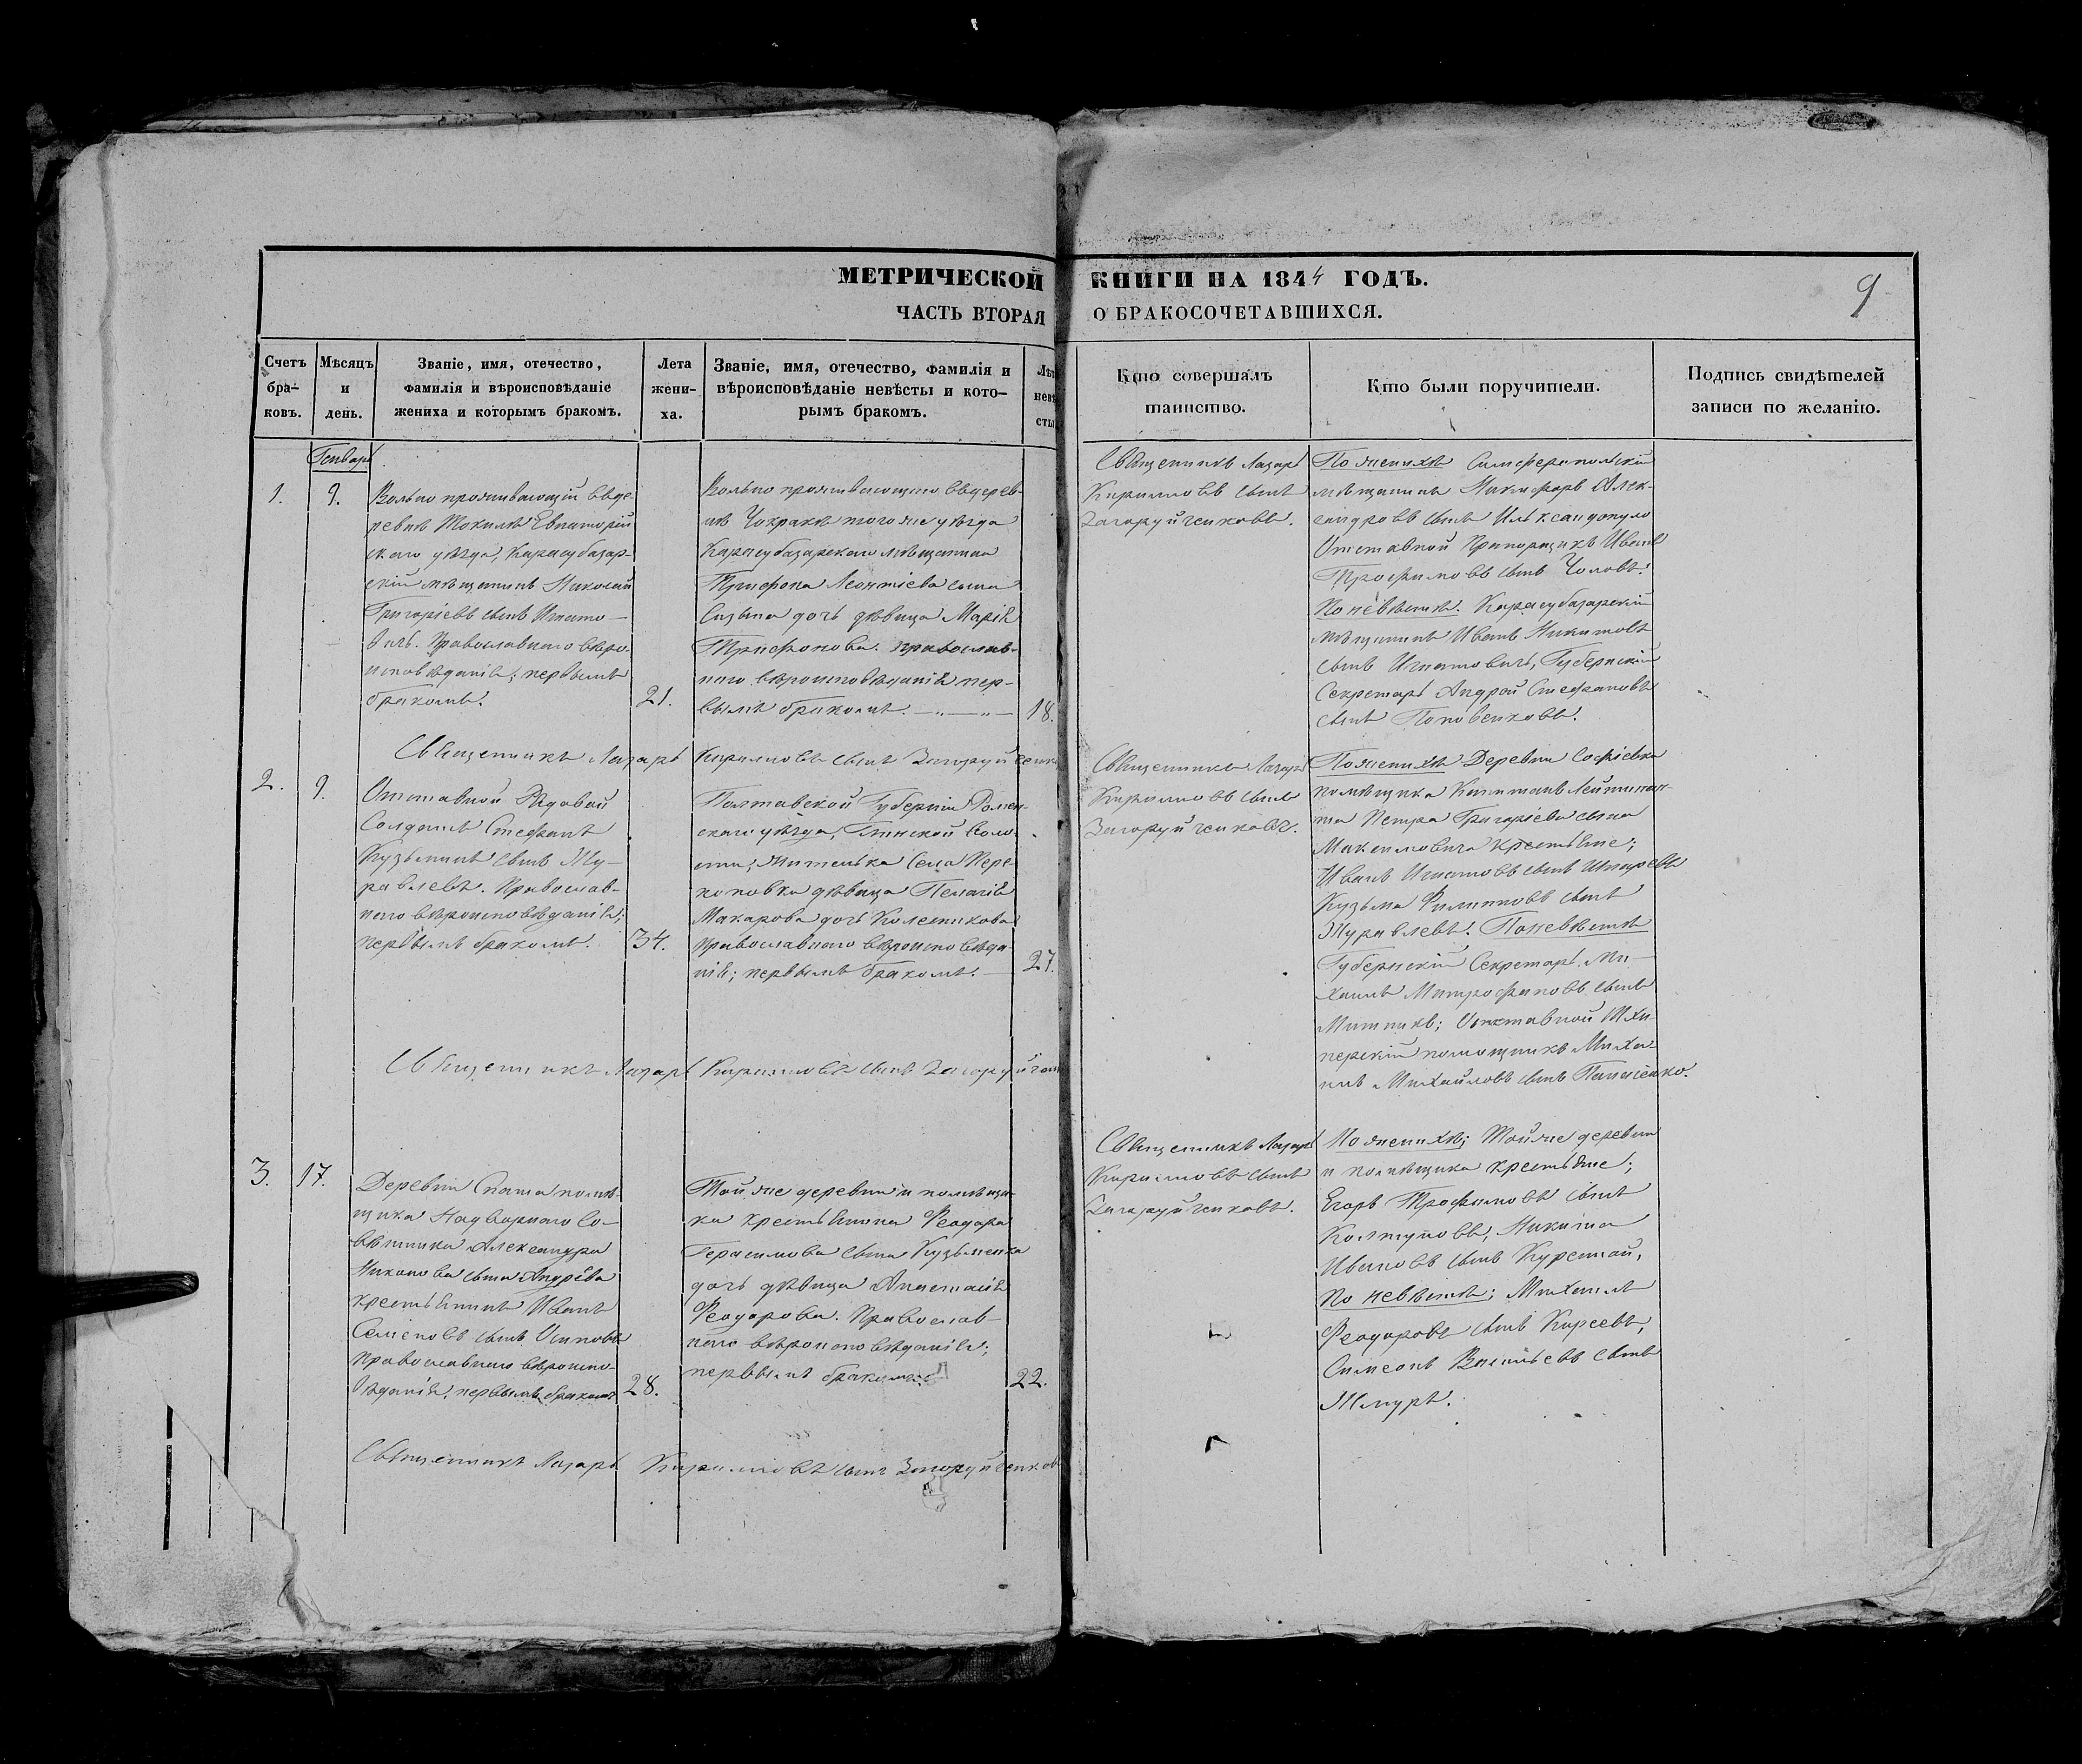 МЕТРИЧЕСКОЙ КНИГИ НА 1844 ГОДЪ.
9
ЧАСТЬ ВТОРАЯ О БРАКОСОЧЕТАВШИХСЯ.
Счетъ бра-ковъ.
Мѣсяцъ и день.
Званіе, имя, отечество,
фамилія и вѣроисповѣданіе
жениха и которымъ бракомъ.
Лета
жени-
ха.
Званіе, имя, отечество, фамилія и
вѣроисповѣданіе невѣсты и кото-
рымъ бракомъ.
Лѣт
невѣ
сты
Кто совершалъ
таинство.
Кто были поручители.
Подпись свидѣтелей
записи по желанію.
Генварь
1.
9.
Вольно проживающій въ де-
ревнѣ Евпаторій
скаго уѣзда, Карасубазар-
скій мѣщанинъ Николай
Григоріевъ сынъ Игнато-
вичъ. Православнаго вѣро-
исповѣданія; первымъ
бракомъ.
21.
Вольно проживающаго въ дерев-
нѣ Чокракъ того же уѣзда
Карасубазарскаго мѣщанина
Трифона Леонтіева сына
дочь дѣвица Марія
Трифонова. Православ-
наго вѣроисповѣданія пер-
вымъ бракомъ.
18.
Священникъ Лазарь
Кириловъ сынъ
Загоруйченковъ.
По женихѣ Симферопольскій
мѣщанинъ Никифоръ Алек-
сандровъ сынъ
Отставной Прапорщикъ Иванъ
Трофимовъ сынъ Чоловъ.
По невѣстѣ. Карасубазарскій
мѣщанинъ Иванъ Никитовъ
сынъ Игнатовичъ, Губернскій
Секретарь Андрей Стефановъ
сынъ Поповенковъ.
Священникъ Лазарь Кириловъ сынъ Загоруйченко
2.
9.
Отставной Рядовой
Солдатъ Стефанъ
Кузьминъ сынъ Жу-
равлевъ. Православ-
наго вѣроисповѣданія;
первымъ бракомъ.
34.
Полтавской Губерніи Ромен-
скаго уѣзда, Глинской воло-
сти; жителька села Пере-
коповка дѣвица Пелагія
Макарова дочь Колесникова
Православнаго вѣроисповѣда-
нія; первымъ бракомъ.
27.
Священникъ Лазарь
Кириловъ сынъ
Загоруйченковъ.
По женихѣ Деревни Софіевка
помѣщика Капитанъ Лейтинан-
та Петра Григоріева сына
Максимовича крестьяне;
Иванъ Игнатовъ сынъ
Кузьма Филиповъ сынъ
Журавлевъ. По невѣстѣ
Губернскій Секретарь Ми-
хаилъ Митрофановъ сынъ
Митникъ; Отставной Шхи-
перскій помощникъ Миха-
илъ Михайловъ сынъ Панасенко.
Священникъ Лазарь Кириловъ сынъ Загоруйчен
3.
17.
Деревни Спата помѣ-
щика Надворнаго Со-
вѣтника Александра
Никонова сына Андрѣева
крестьянинъ Иванъ
Семеновъ сынъ Осиповъ
православнаго вѣроиспо-
вѣданія, первымъ бракомъ
28.
Той же деревни и помѣщи-
ка крестьянина Феодора
Герасимова сына Кузьменка
дочь дѣвица Анастасія
Феодорова. Православ-
наго вѣроисповѣданія;
первымъ бракомъ.
22.
Священникъ Лазарь
Кириловъ сынъ
Загоруйченковъ.
По женихѣ; Той же деревни
и помѣщика крестьяне;
Егоръ Трофимовъ сынъ
Колтуновъ, Никита
Ивановъ сынъ Куренной,
По невѣстѣ; Михаилъ
Феодоровъ сынъ Киреевъ,
Симеонъ Васильевъ сынъ
Священникъ Лазарь Кириловъ сынъ Загоруйченков